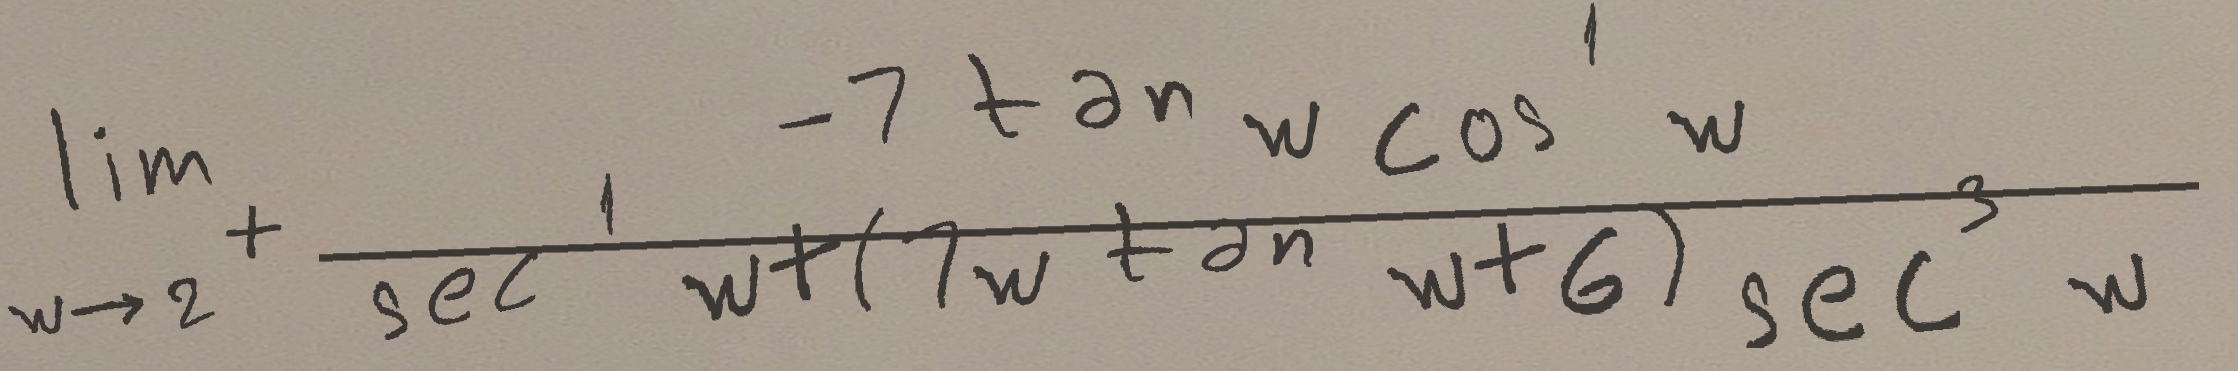 \lim_{w \to 2^+} \frac{-7 \tan w \cos^1 w}{\sec^1 w + (7w \tan w + 6) \sec^3 w}